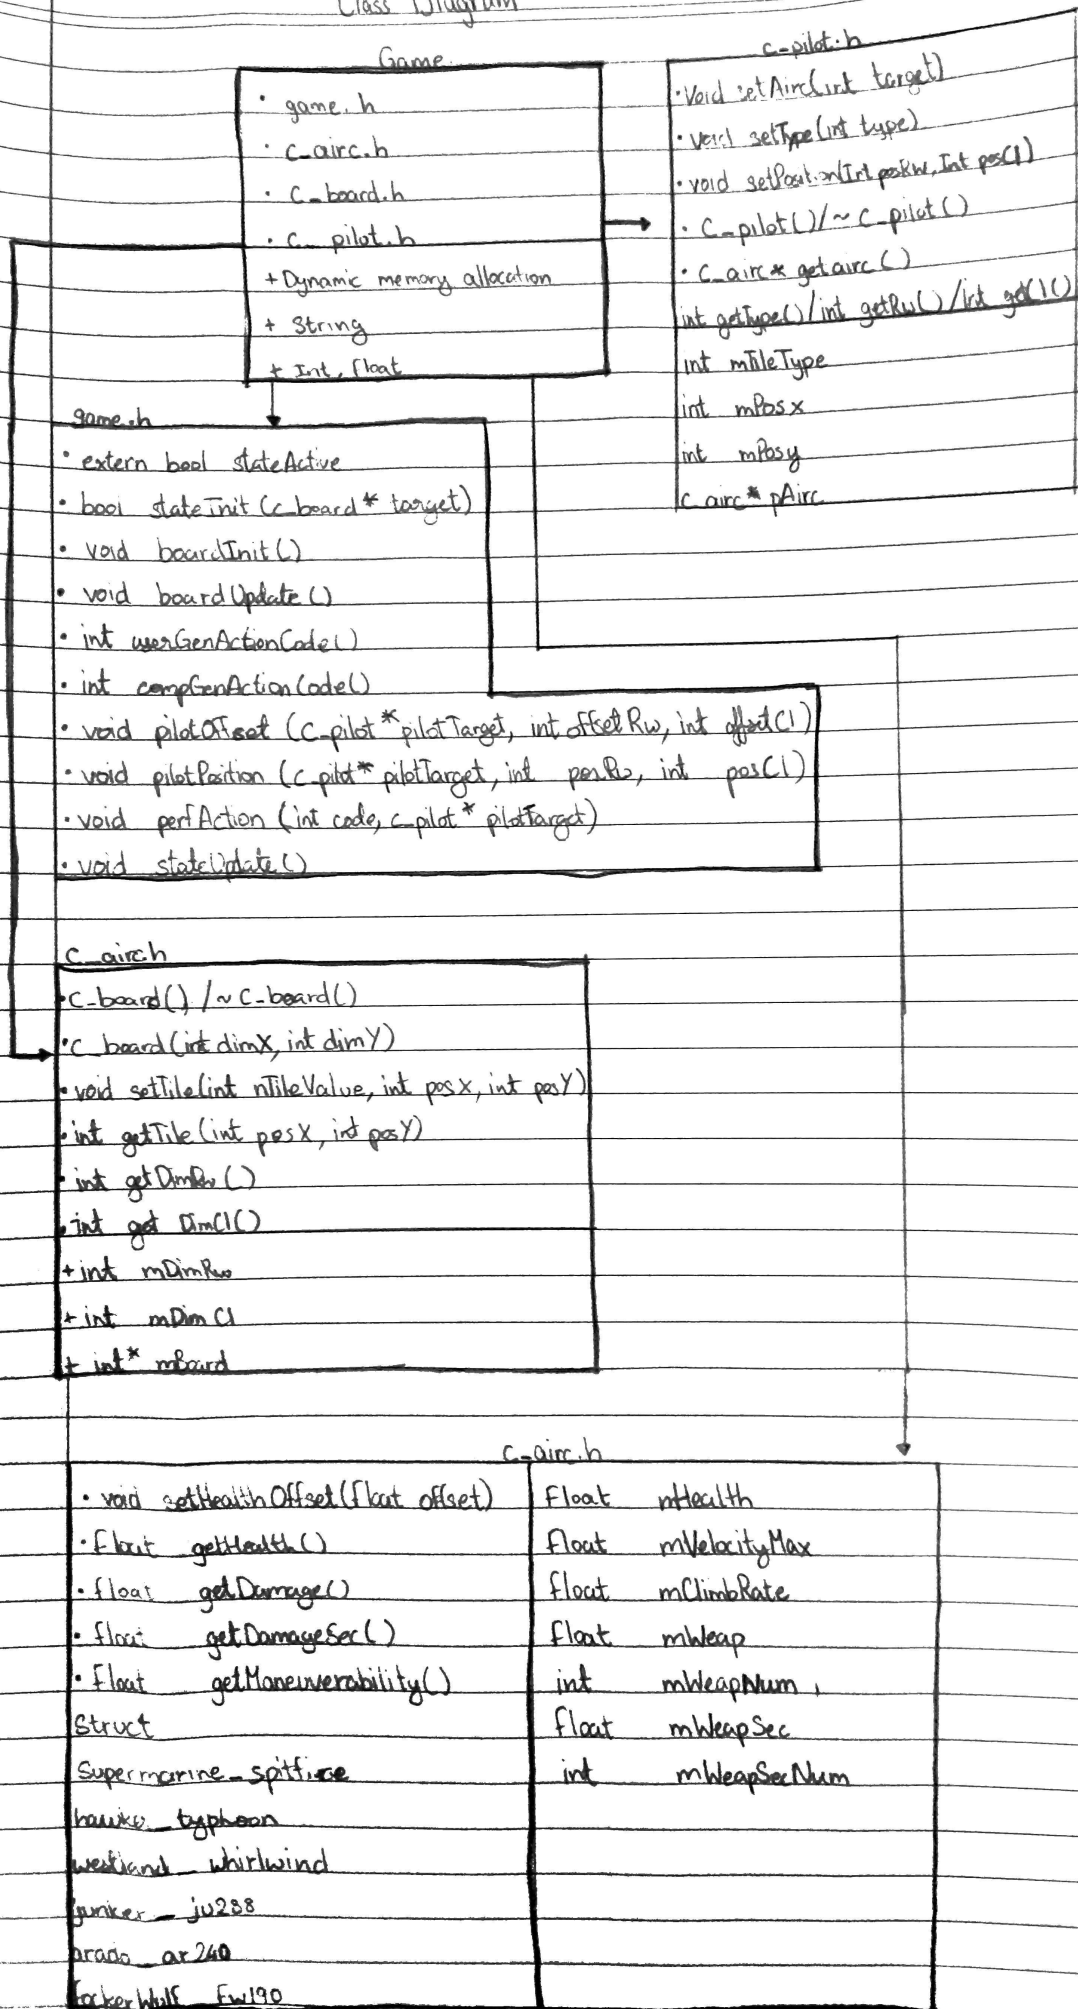 Class Diagram
Game
· game.h
· c_airc.h
· c_board.h
· c_pilot.h
+ Dynamic memory allocation
+ String
+ Int, float
c_pilot.h
· Void setAirc(int target)
· void setType(int type)
· void setPosition(Int posRw, Int posCl)
· C_pilot()/~C_pilot()
· C_airc* getairc()
int getType()/int getRw()/int getCl()
int mTileType
int mPosx
int mPosy
c_airc* pAirc
game.h
· extern bool stateActive
· bool stateInit (c_board* target)
· void boardInit()
· void boardUpdate()
· int userGenActionCode()
· int compGenActionCode()
· void pilotOffset (c_pilot* pilotTarget, int offsetRw, int offsetCl)
· void pilotPosition (c_pilot* pilotTarget, int posRw, int posCl)
· void perfAction (int code, c_pilot* pilotTarget)
· void stateUpdate()
c_airc.h
· C_board() /~C_board()
· C_board(int dimX, int dimY)
· void setTile(int nTileValue, int posX, int posY)
· int getTile(int posX, int posY)
· int getDimRw()
· int get DimCl()
+ int mDimRw
+ int mDimCl
+ int* mBoard
c_airc.h
· void setHealthOffset(float offset)
· float getHealth()
· float getDamage()
· float getDamageSec()
· Float getManeuverability()
Struct
Supermarine_spitfire
hawke_typhoon
westland_whirlwind
junker_ju288
arado_ar240
fockerWulf_Fw190
Float mHealth
float mVelocityMax
float mClimbRate
float mWeap
int mWeapNum
float mWeapSec
int mWeapSecNum